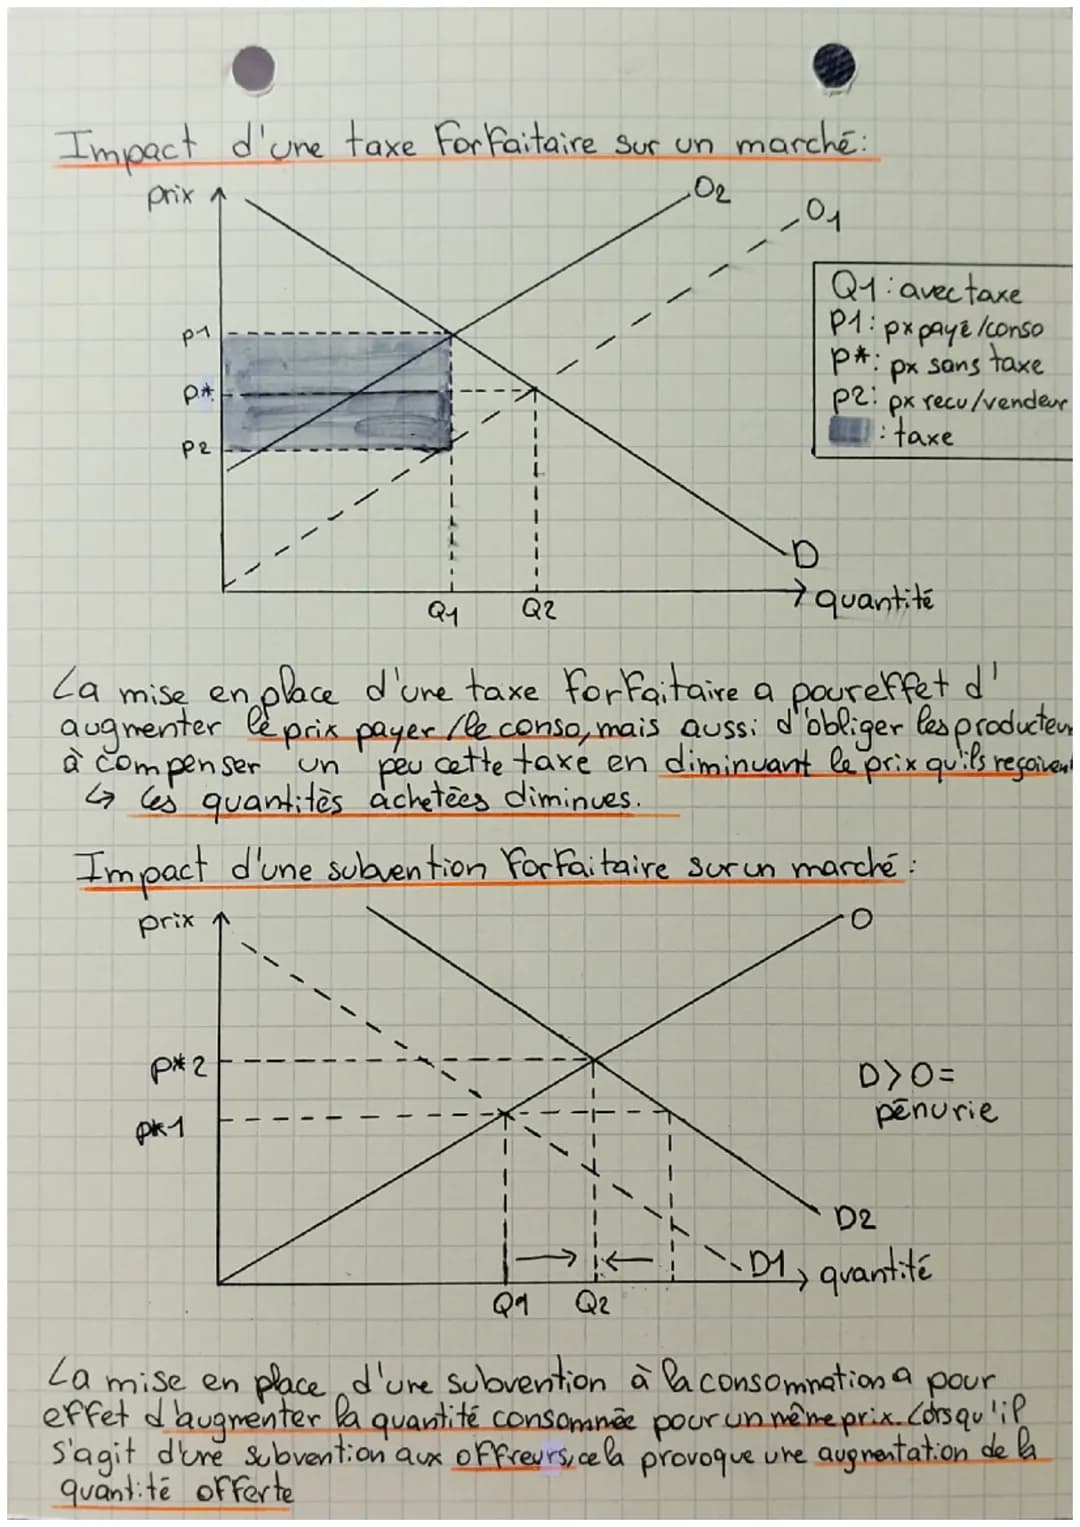 Impact d'une taxe forfaitaire sur un marché:
prix
O2
O1
Q1: avec taxe
P1: px payé/conso
P*: px sans taxe
P2: px recu/vendeur
: taxe
P1
P*
P2
D
Q1 Q2
quantité
La mise en place d'une taxe forfaitaire a pour effet d'
augmenter le prix payer /le conso, mais aussi d'obliger les producteur
à compenser un peu cette taxe en diminuant le prix qu'ils reçoivent
↳ les quantités achetées diminues.
Impact d'une subvention forfaitaire sur un marché:
prix
O
P*2
D>O=
pénurie
P*1
D2
D1
quantité
Q1 Q2
La mise en place d'une subvention à la consommation a pour
effet d'augmenter la quantité consommée pour un même prix. Lorsqu'il
s'agit d'une subvention aux offreurs, cela provoque une augmentation de la
quantité offerte